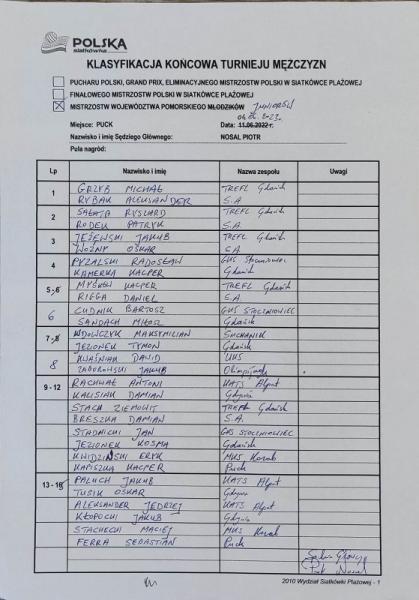 POLSKA
siatkówka
KLASYFIKACJA KOŃCOWA TURNIEJU MĘŻCZYZN
PUCHARU POLSKI, GRAND PRIX, ELIMINACYJNEGO MISTRZOSTW POLSKI W SIATKÓWCE PLAŻOWEJ
FINAŁOWEGO MISTRZOSTW POLSKI W SIATKÓWCE PLAŻOWEJ
MISTRZOSTW WOJEWÓDZTWA POMORSKIEGO MŁODZIKÓW JUNIORÓW
Miejsce: PUCK Data: 11.06.2022 r.
Nazwisko i imię Sędziego Głównego: NOSAL PIOTR
Pula nagród:
Lp Nazwisko i imię Nazwa zespołu Uwagi
1 GRZYB MICHAŁ TREFL Gdańsk
RYBAK ALEKSANDER S.A.
2 SAŁATA RYSZARD TREFL Gdańsk
RODEK PATRYK S.A.
3 JEŻEWSKI JAKUB TREFL Gdańsk
WOŹNY OSKAR S.A.
4 PYZALSKI RADOSŁAW GKS Stoczniowiec
KAMERKA KACPER Gdańsk
5 KACPER TREFL Gdańsk
RIGGA DANIEL S.A.
6 CUDNIK BARTOSZ GKS STOCZNIOWIEC
SANDACH MIŁOSZ Gdańsk
7 WDOWCZYK MAKSYMILIAN SUCHANIK
JEZIONEK TYMON Gdańsk
8 KWAŚNIAK DAWID UKS
ZABOROWSKI JAKUB
9 - 12 RACHWAŁ ANTONI KATS Alpat
KALISIAK DAMIAN Gdynia
STACH ZIEMOWIT TREFL Gdańsk
BRESZKA DAMIAN S.A.
STADNICKI JAN GKS STOCZNIOWIEC
JEZIONEK KOSMA Gdańsk
KWIDZIŃSKI ERYK MKS Korab
KAPISZKA KACPER Puck
13 - PALUCH JAKUB KATS Alpat
TUSIK OSKAR Gdynia
ALEKSANDER JĘDRZEJ KATS Alpat
KŁOPOCKI JAKUB Gdynia
STACHECKI MACIEJ MKS Korab
FERRA SEBASTIAN Puck
2010 Wydział Siatkówki Plażowej - 1